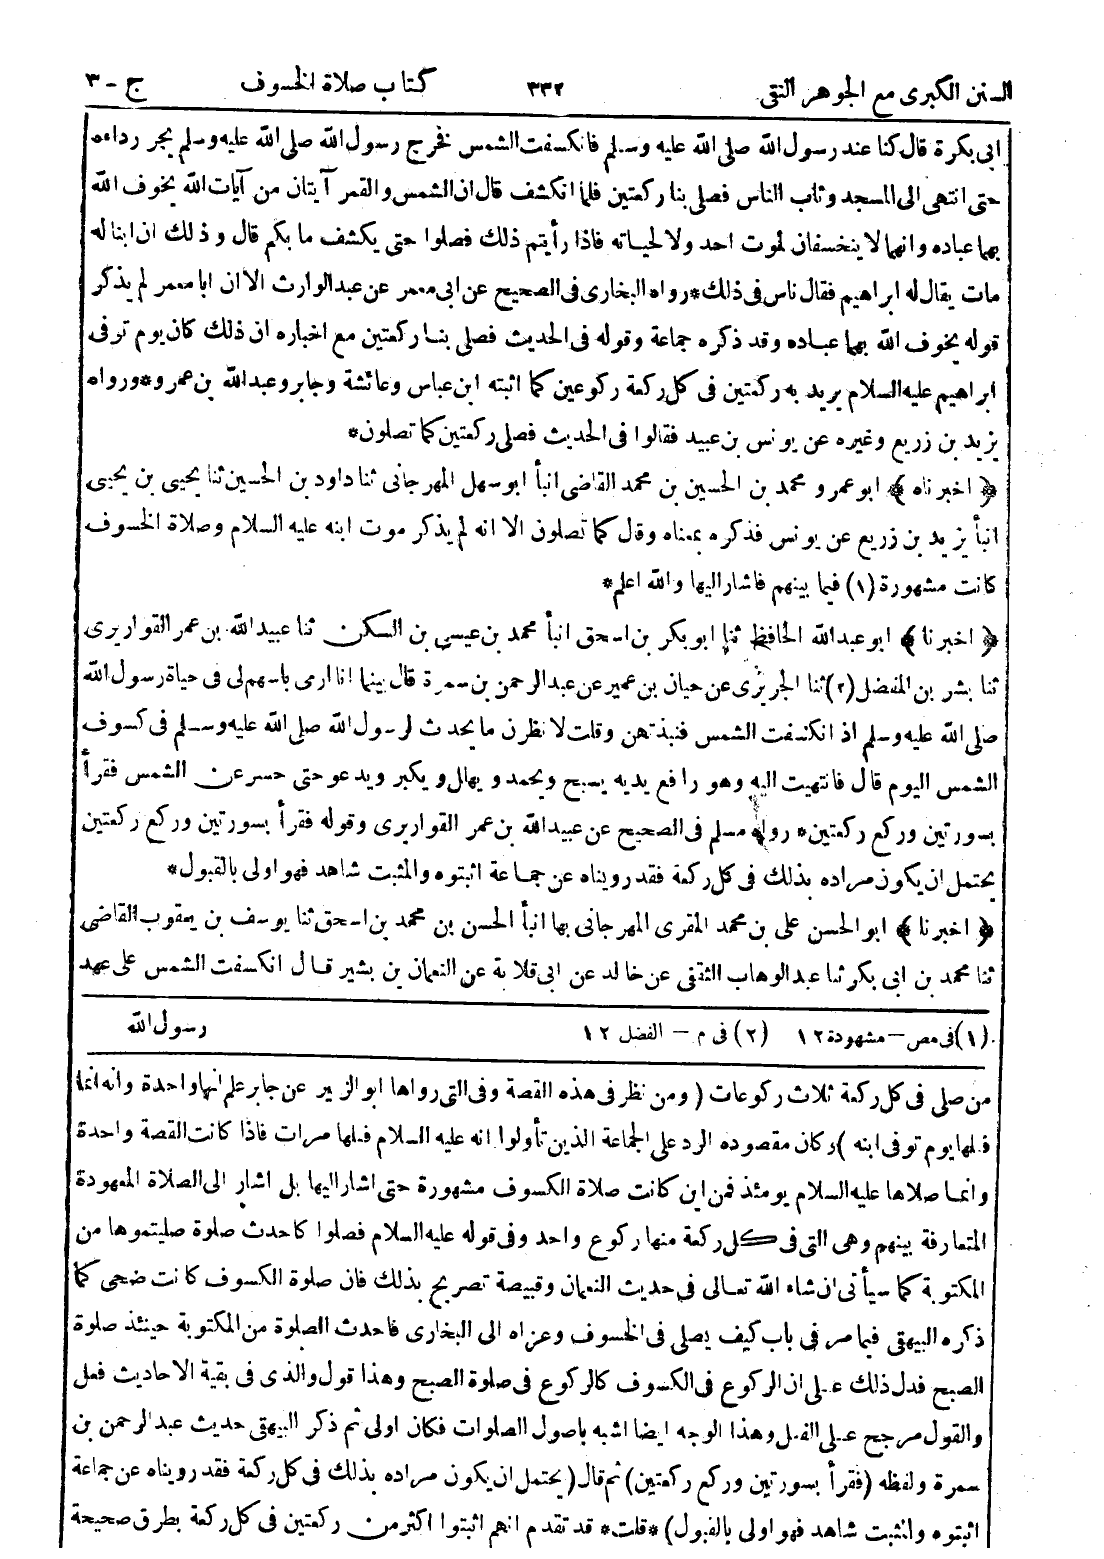 السنن الكبرى مع الجوهر النقى ٣٣٢ كتاب صلاة الخسوف ج - ٣
ابى بكرة قال كنا عند رسول الله صلى الله عليه وسلم فانكسفت الشمس فخرج رسول الله صلى الله عليه وسلم يجر رداءه
حتى انتهى الى المسجد وثاب الناس فصلى بنا ركعتين فلما انكشف قال ان الشمس والقمر آيتان من آيات الله يخوف الله
بهما عباده وانهما لا ينخسفان لموت احد ولا لحياته فاذا رأيتم ذلك فصلوا حتى يكشف ما بكم قال وذلك ان ابنا له
مات يقال له ابراهيم فقال ناس فى ذلك * رواه البخارى فى الصحيح عن ابى معمر عن عبد الوارث الا ان ابا معمر لم يذكر
قوله يخوف الله بهما عباده وقد ذكره جماعة وقوله فى الحديث فصلى بنا ركعتين مع اخباره ان ذلك كان يوم توفى
ابراهيم عليه السلام يريد به ركعتين فى كل ركعة ركوعين كما اثبته ابن عباس وعائشة وجابر وعبد الله بن عمرو * ورواه
يزيد بن زريع وغيره عن يونس بن عبيد فقالوا فى الحديث فصلى ركعتين كما تصلون *
﴿ اخبرناه ﴾ ابو عمرو محمد بن الحسين بن محمد القاضى انبأ ابو سهل المهرجانى ثنا داود بن الحسين ثنا يحيى بن يحيى
انبأ يزيد بن زريع عن يونس فذكره بمعناه وقال كما تصلون الا انه لم يذكر موت ابنه عليه السلام وصلاة الخسوف
كانت مشهورة (١) فيما بينهم فاشار اليها والله اعلم *
﴿ اخبرنا ﴾ ابو عبد الله الحافظ ثنا ابو بكر بن اسحق انبأ محمد بن عيسى بن السكن ثنا عبيد الله بن عمر القواريرى
ثنا بشر بن المفضل (٢) ثنا الجريرى عن حيان بن عمير عن عبد الرحمن بن سمرة قال بينما انا ارمى باسهم لى فى حياة رسول الله
صلى الله عليه وسلم اذ انكسفت الشمس فنبذتهن وقلت لا نظرن ما يحدث لرسول الله صلى الله عليه وسلم فى كسوف
الشمس اليوم قال فانتهيت اليه وهو رافع يديه يسبح ويحمد ويهلل ويكبر ويدعو حتى حسر عن الشمس فقرأ
بسورتين وركع ركعتين * رواه مسلم فى الصحيح عن عبيد الله بن عمر القواريرى وقوله فقرأ بسورتين وركع ركعتين
يحتمل ان يكون مراده بذلك فى كل ركعة فقد رويناه عن جماعة اثبتوه والمثبت شاهد فهو اولى بالقبول *
﴿ اخبرنا ﴾ ابو الحسن على بن محمد المقرى المهرجانى بها انبأ الحسن بن محمد بن اسحق ثنا يوسف بن يعقوب القاضى
ثنا محمد بن ابى بكر ثنا عبد الوهاب الثقفى عن خالد عن ابى قلابة عن النعمان بن بشير قال انكسفت الشمس على عهد
رسول الله
(١) فى مص - مشهودة ١٢ (٢) فى م - الفضل ١٢
من صلى فى كل ركعة ثلاث ركوعات ( ومن نظر فى هذه القصة وفى التى رواها ابو الزبير عن جابر علم انها واحدة وانه انما
فعلها يوم توفى ابنه ) وكان مقصوده الرد على الجماعة الذين تأولوا انه عليه السلام فعلها مرات فاذا كانت القصة واحدة
وانما صلاها عليه السلام يومئذ فمن اين كانت صلاة الكسوف مشهورة حتى اشار اليها بل اشار الى الصلاة المعهودة
المتعارفة بينهم وهى التى فى كل ركعة منها ركوع واحد وفى قوله عليه السلام فصلوا كاحدث صلوة صليتموها من
المكتوبة كما سيأتى ان شاء الله تعالى فى حديث النعمان وقبيصة تصريح بذلك فان صلوة الكسوف كانت ضحى كما
ذكره البيهقى فيما مر فى باب كيف يصلى فى الخسوف وعزاه الى البخارى فاحدث الصلوة من المكتوبة حينئذ صلوة
الصبح فدل ذلك على ان الركوع فى الكسوف كالركوع فى صلوة الصبح وهذا قول والذى فى بقية الاحاديث فعل
والقول مرجح على الفعل وهذا الوجه ايضا اشبه باصول الصلوات فكان اولى ثم ذكر البيهقى حديث عبد الرحمن بن
سمرة ولفظه (فقرأ بسورتين وركع ركعتين) ثم قال ( يحتمل ان يكون مراده بذلك فى كل ركعة فقد رويناه عن جماعة
اثبتوه والمثبت شاهد فهو اولى بالقبول ) * قلت * قد تقدم انهم اثبتوا اكثر من ركعتين فى كل ركعة بطرق صحيحة